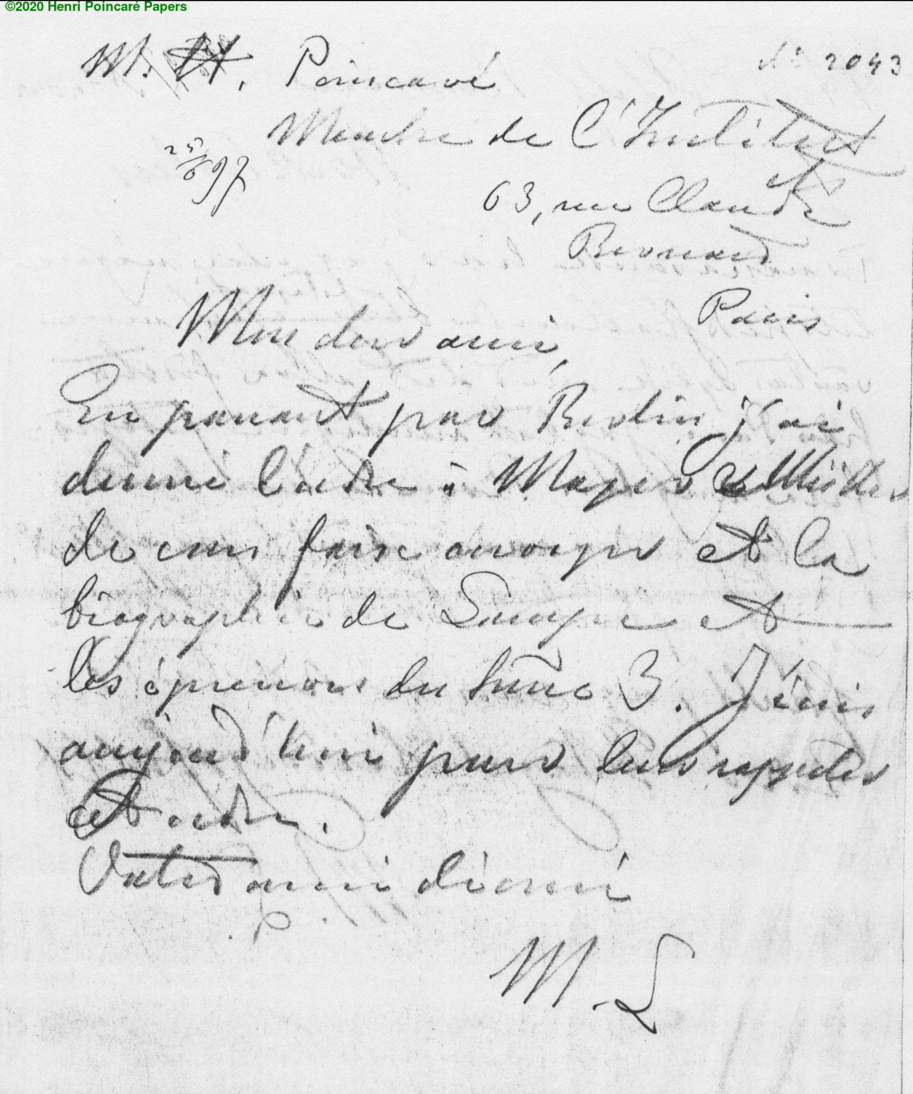 ©2020 Henri Poincaré Papers
M. H. Poincaré
No 2043
Membre de l'Institut
63, rue Claude
Bernard
Paris
Mon cher ami,
En passant par Berlin j'ai
donné l'ordre à Mayer & Müller
de vous faire envoyer et la
biographie de et
les épreuves du tome 3. J'écris
aujourd'hui pour leur rappeler
cet ordre.
Votre ami dévoué
M. L